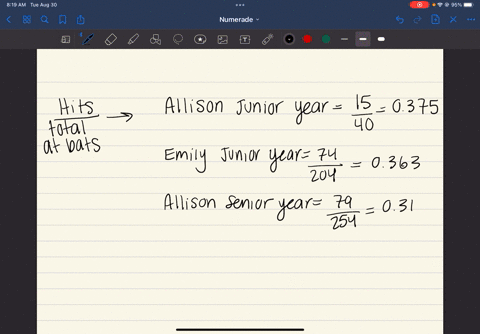 8:19 AM Tue Aug 30
95%
Numerade
Hits
total
at bats
Allison Junior year = 15/40 = 0.375
Emily Junior year = 74/204 = 0.363
Allison Senior year = 79/254 = 0.31